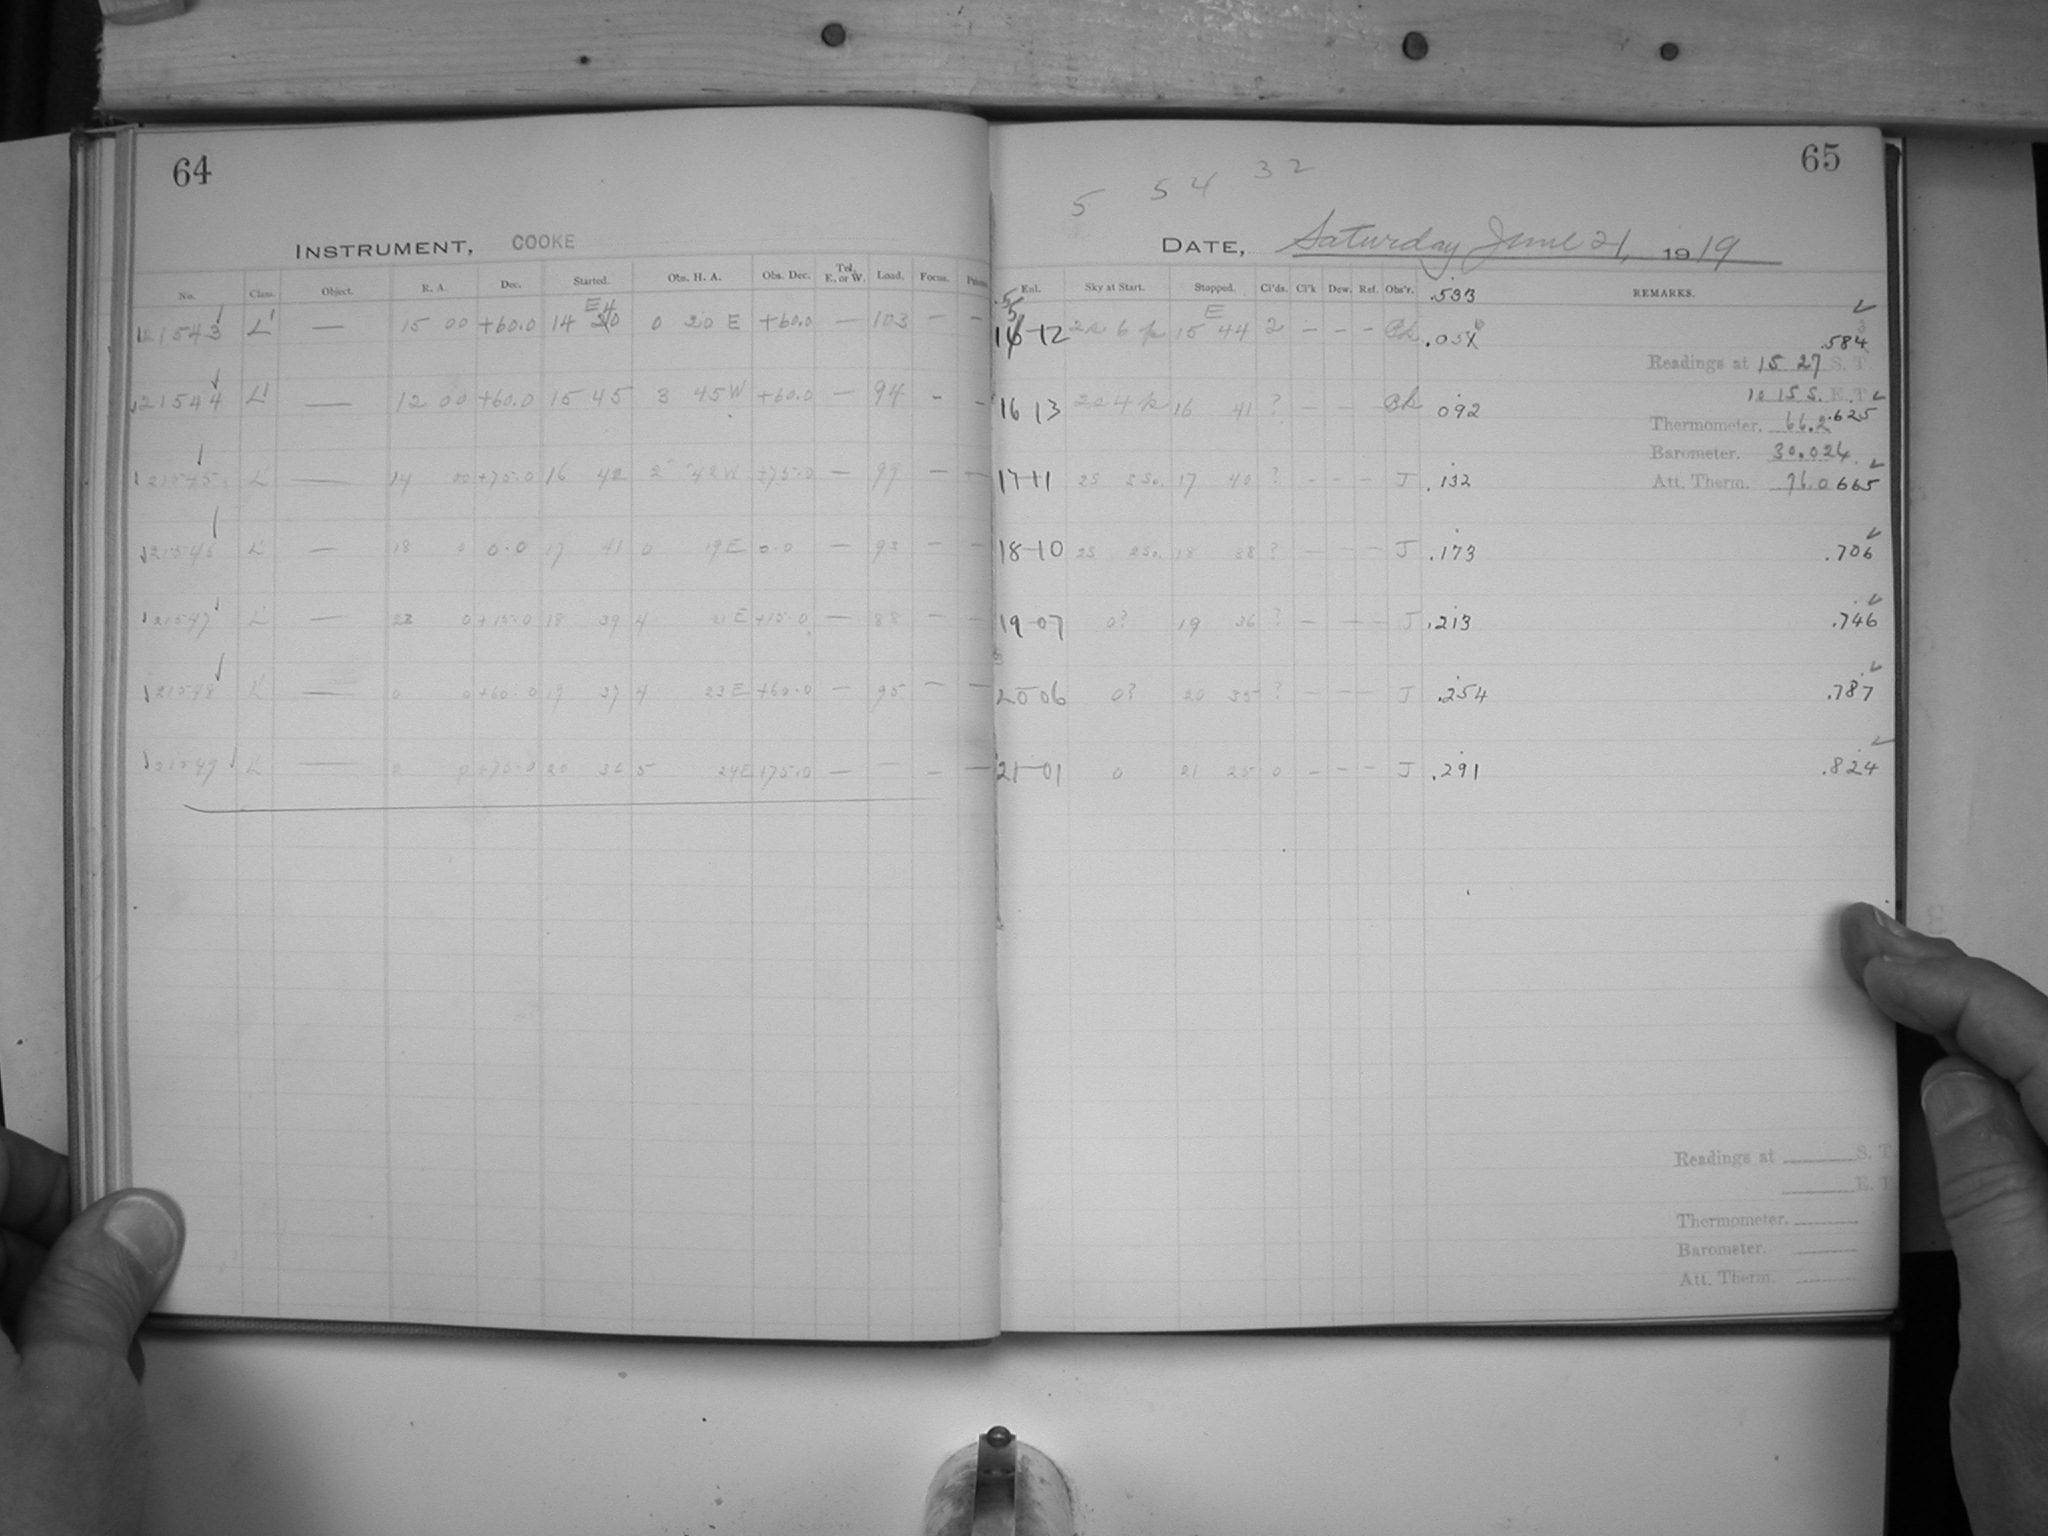 64
INSTRUMENT, COOKE
No. Class. Object. R. A. Dec. Started. Obs. H. A. Obs. Dec. Tel. E. or W. Load. Focus.
21543 L' — 15 00 +60.0 14 E4 0 20 E +60.0 — 103 — —
21544 L' — 12 00 +60.0 15 45 3 45 W +60.0 — 94 - -
21545 L' — 14 00 +75.0 16 42 2 42 W +75.0 — 99 — —
21546 L' — 18 0 0.0 17 41 0 19 E 0.0 — 93 — —
21547 L' — 23 0 +15.0 18 39 4 21 E +15.0 — 88 — —
21548 L' — 0 0 +60.0 19 37 4 23 E +60.0 — 95 — —
21549 L' — 2 0 +75.0 20 36 5 24 E +75.0 — — — —
65
5 54 32
DATE, Saturday June 21, 1919
Enl. Sky at Start. Stopped. Cl'ds. Cl'k Dew. Ref. Obs'r. .533 REMARKS.
-12 15 E 44 2 — - - .584
Readings at 15 27 S. T.
E. T.
16 13 16 41 ? — — — 092 .625
Thermometer. 66.2
Barometer. 30.024
17 11 17 40 ? - - - J .132 665
Att. Therm. 76.0
18-10 18 38 ? — — — J .173 .706
19-07 0? 19 36 ? — — — J .213 .746
20 06 0? 20 35 ? — — — J .254 .787
21-01 0 21 25 0 - - - J .291 .824
Readings at S. T.
E. T.
Thermometer.
Barometer.
Att. Therm.